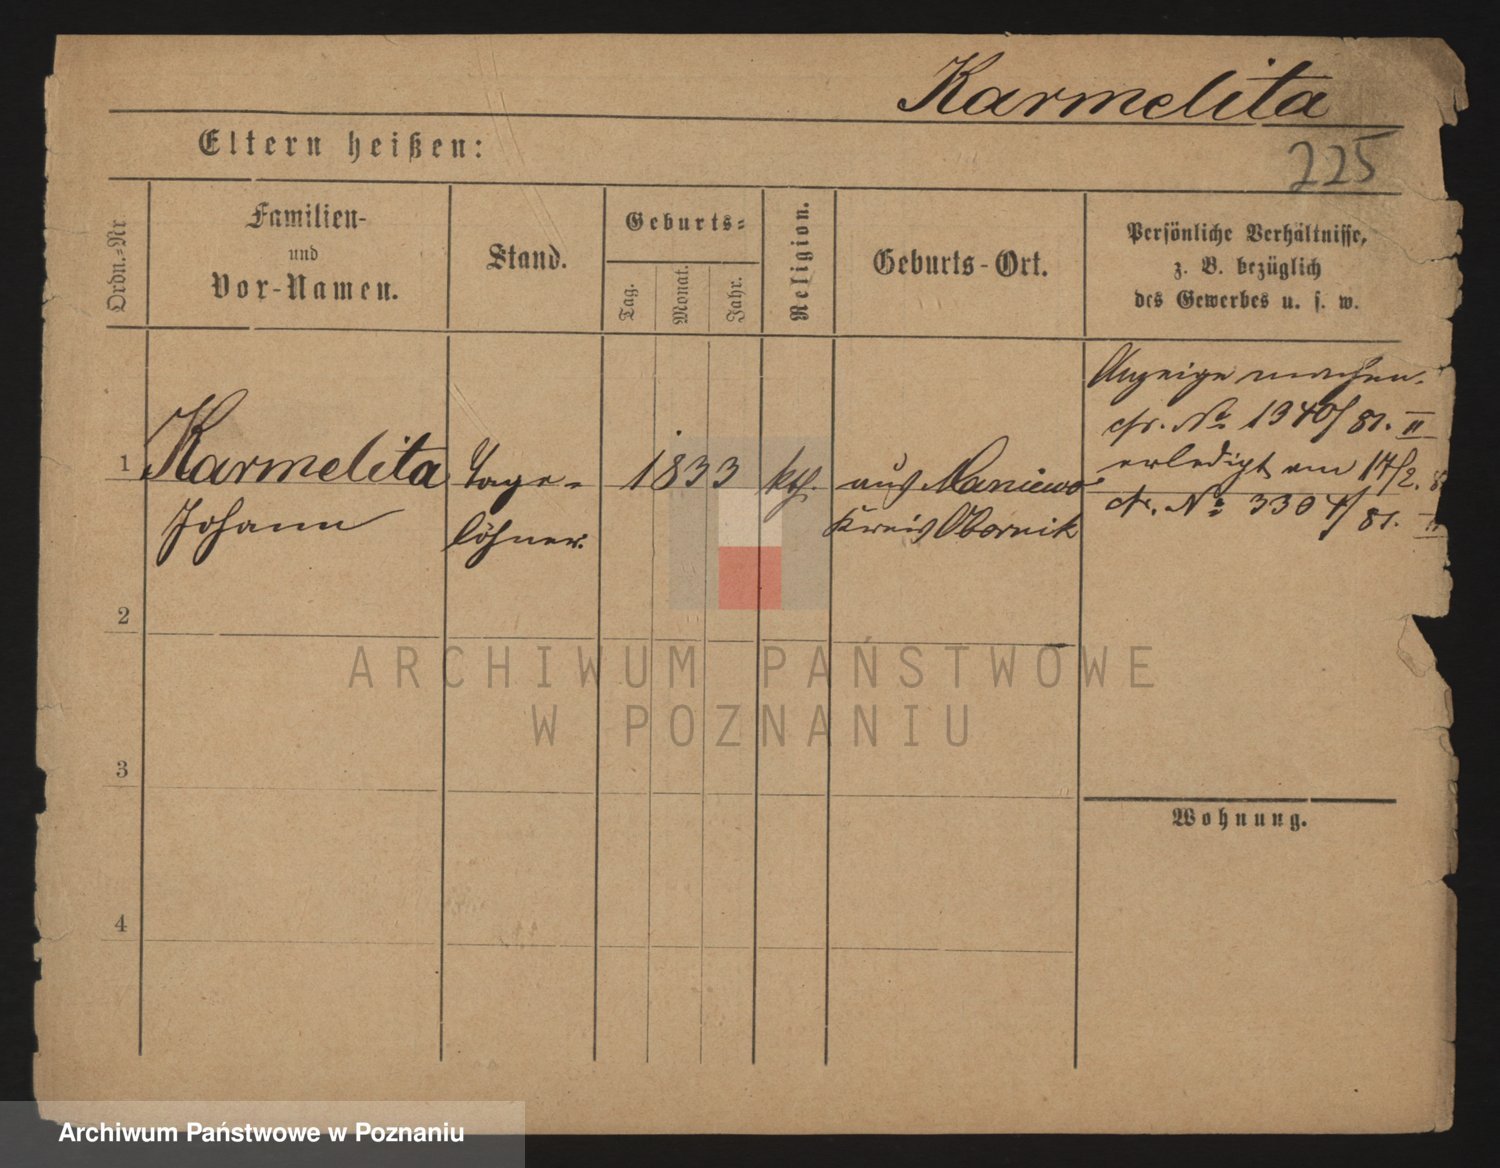 Karmelita
Eltern heißen:
225
Ordn.-Nr
Familien-
und
Vor-Namen.
Stand.
Geburts-
Tag.
Monat.
Jahr.
Religion.
Geburts-Ort.
Persönliche Verhältnisse,
z. B. bezüglich
des Gewerbes u. s. w.
1
Karmelita
Johann
Tage-
löhner.
1833
kth.
aus Maniewo
Kreis Obornik
Anzeige machen.
cfr. No 1340/81. II
erledigt am 17/2.
cfr. No 3304/81. II
2
3
4
Wohnung.
ARCHIWUM PAŃSTWOWE
W POZNANIU
Archiwum Państwowe w Poznaniu